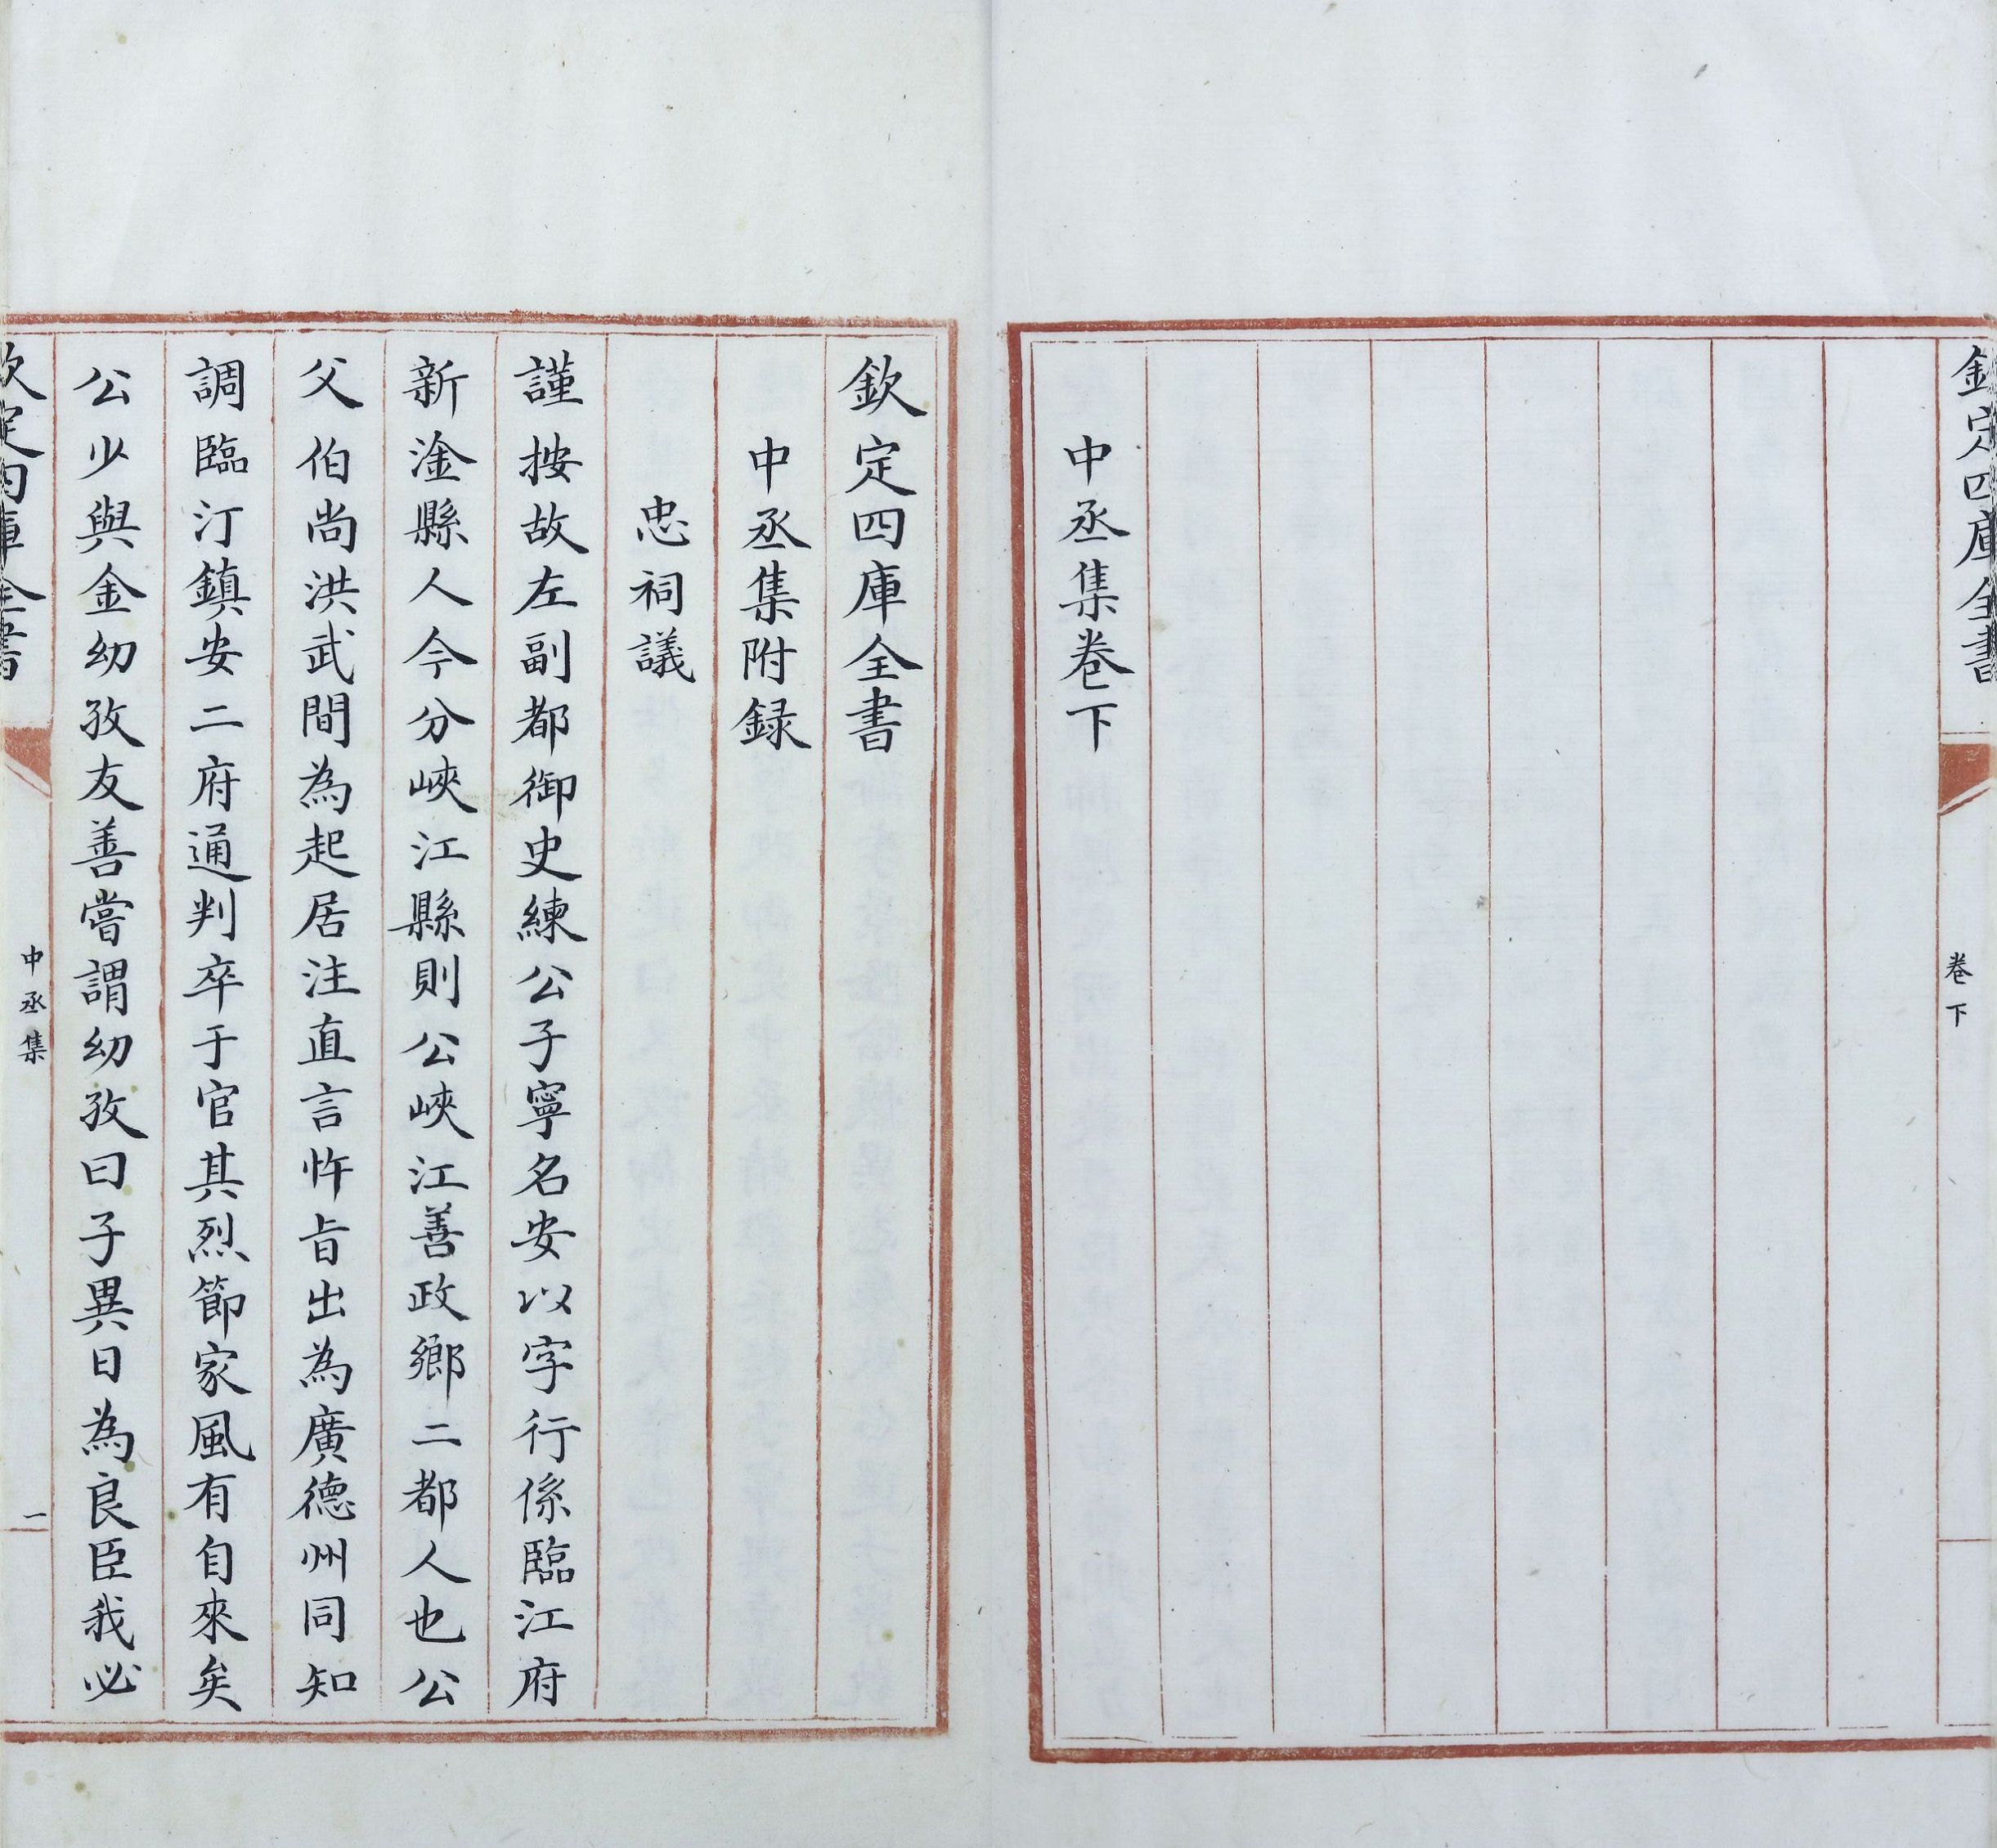 欽定四庫全書
卷下
中丞集卷下
欽定四庫全書
中丞集附録
忠祠議
謹按故左副都御史練公子寧名安以字行係臨江府
新淦縣人今分峽江縣則公峽江善政鄉二都人也公
父伯尚洪武間為起居注直言忤旨出為廣德州同知
調臨汀鎮安二府通判卒于官其烈節家風有自來矣
公少與金幼孜友善嘗謂幼孜曰子異日為良臣我必
欽定四庫全書
中丞集
一